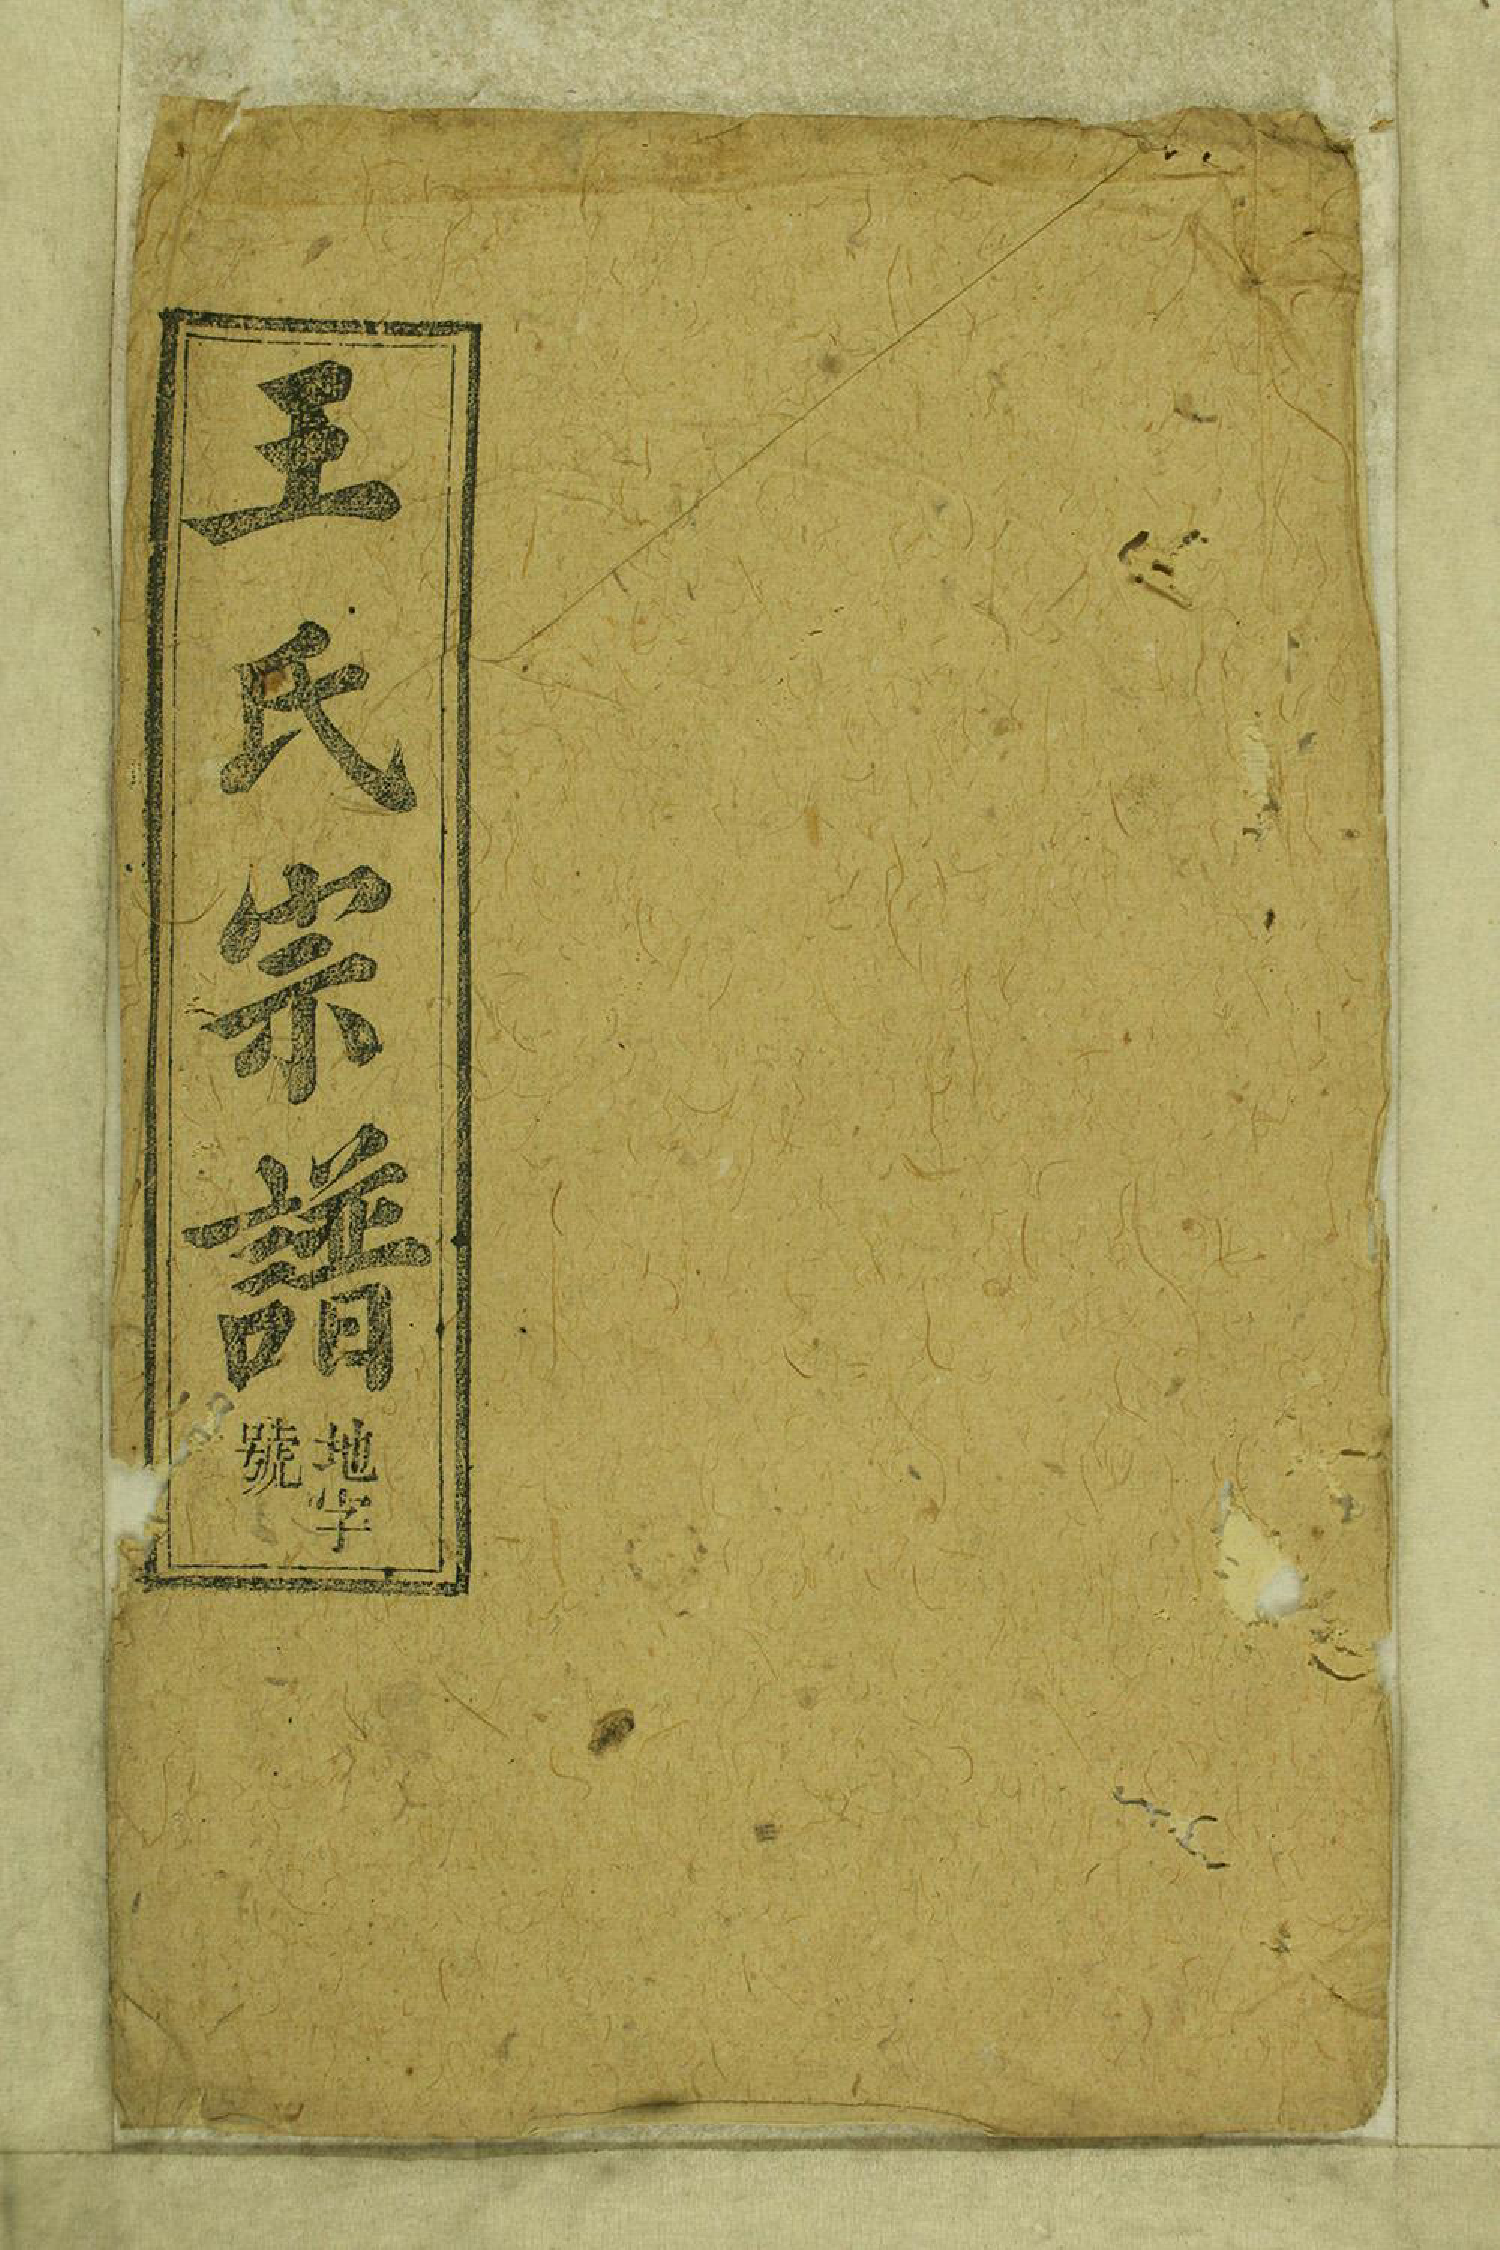 王氏宗譜
地字
號